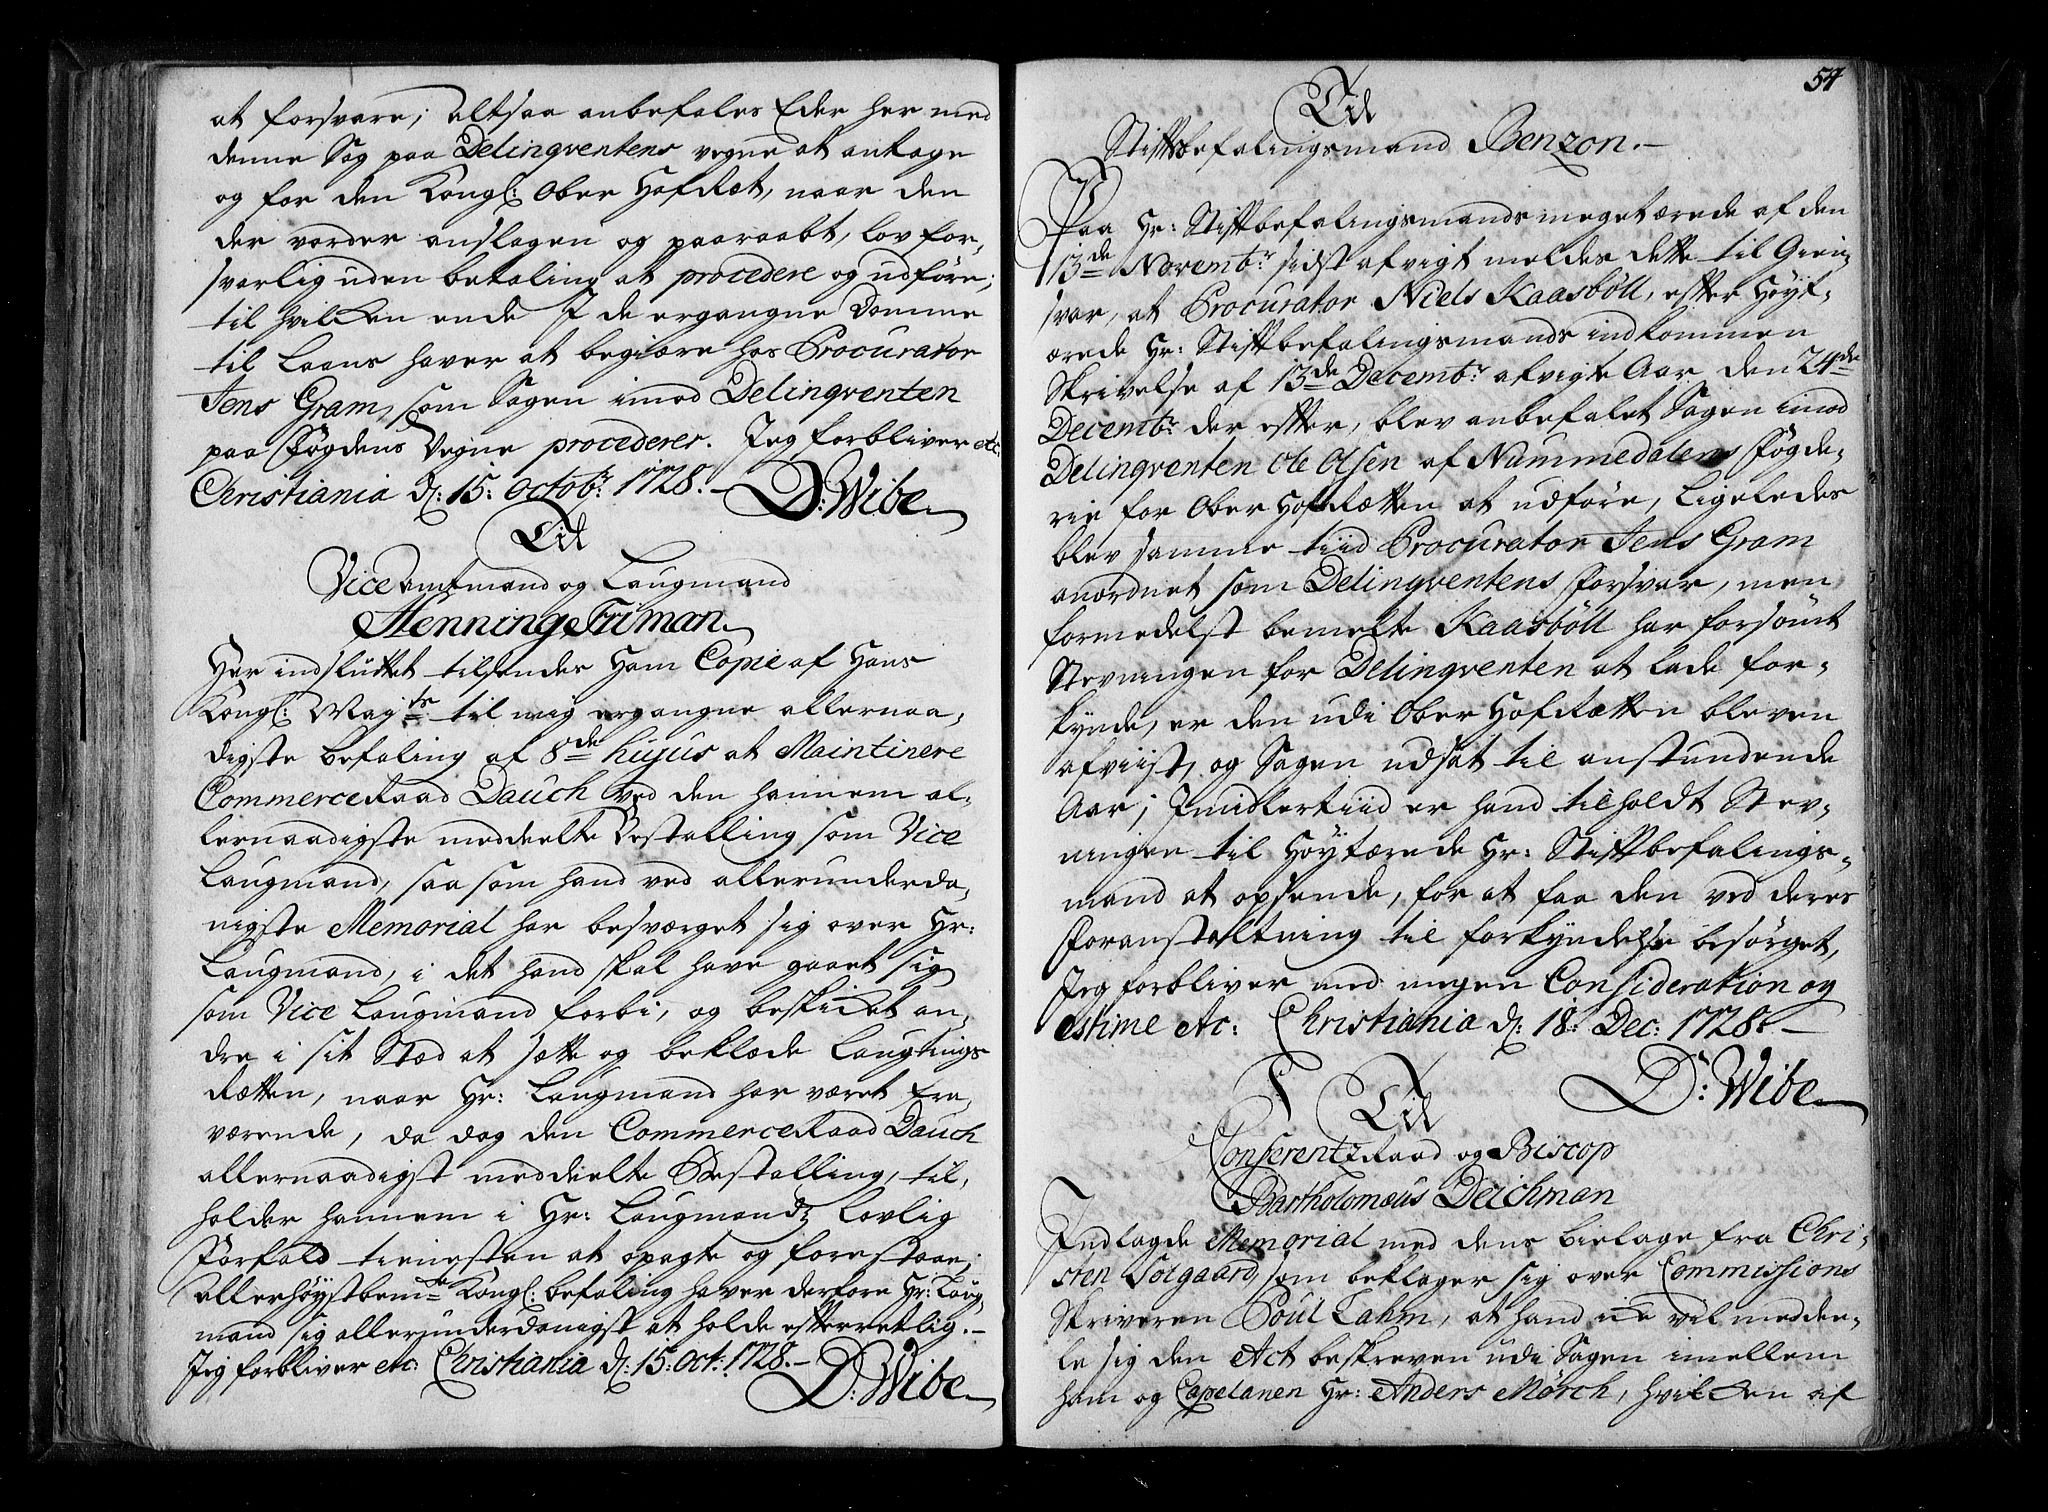 at forsvare; altsaa anbefales Eder her med
denne Sag paa Delinqventens vegne at antage
og for den Kongl: Ober HofRet, naar den
der vorder anslagen og paaraabt, lov for„
svarlig uden betaling at procedere og udføre;
til hvilken ende I de ergangne Domme
til Laans haver at begiære hos Procurator
Jens Gram, som Sagen imod Delinqventen
paa Fogdens Vegne procederer. Jeg forbliver etc:
Christiania d: 15: Octobr: 1728.–
D: Wibe
Til
Vice Amtmand og Laugmand
Henning Friman
Her indsluttet tilsendes Ham Copie af Hans
Kongl: Mayts: til mig ergangne allernaa„
digste befaling af 8de hujus at Maintinere
CommerceRaad Dauch ved den hannem al„
lernaadigste meddeelte Bestalling som Vice
Laugmand, saa som hand ved allerunderda„
nigste Memorial har besværget sig over Hr:
Laugmand, i det hand skal have gaaet sig
som Vice Laugmand forbi, og beskicket an„
dre i sit Sted at sætte og beklæde Laugtings
Rætten, naar Hr: Laugmand har været fra„
værende, da dog den CommerceRaad Dauch
allernaadigst meddeelte Bestalling, til„
holder hannem i Hr: Laugmandz lovlig
Forfald tienesten at opagte og forestaae;
allerhøystbemte Kongl: befaling haver derfore Hr: Laug„
mand sig allerunderdanigst at holde efterretlig.–
Jeg forbliver etc: Christiania d: 15: Oct: 1728.–
D: Wibe
54
Til
Stiftsbefalingsmand Benzon.–
Paa Hr: Stiftbefalingsmands meget ærede af den
13de Novembr: sidst afvigt meldes dette til Gien„
svar, at Procurator Niels Kaasbøll, efter Høyt„
ærede Hr: Stiftbefalingsmands indkommen
Skrivelse af 13de Decembr: afvigte Aar, den 24de
Decembr: der efter, blev anbefalet Sagen imod
Delinqventen Ole Olsen af Nummedalens Fogde„
rie for Ober HofRætten at udføre, ligeledes
blev samme tiid Procurator Jens Gram
anordnet som Delinqventens Forsvar, men
formedelst bemelte Kaasbøll har forsømt
Stevningen for Delinqventen at lade for„
kynde, er den udi Ober HofRætten bleven
afviist, og Sagen udsat til anstundende
Aar; Imidlertiid er hand tilholdt Stev„
ningen til Høytærede Hr: Stiftbefalings„
mand at opsende, for at faa den ved deres
Foranstaltning til forkyndelse besørget,
Jeg forbliver med megen Consideration og
estime etc: Christiania d: 18: Dec: 1728.–
D: Wibe
Til
ConferentzRaad og Biscop
Bartholomæus Deichman
Indlagde Memorial med dens bielage fra Chri„
sten Solgaard, som beklager sig over Commissions
Skriveren Poul Lahm, at hand icke vil meddee„
le sig den Act beskreven udi Sagen imellem
ham og Capelanen Hr: Anders Mørch, hvilken af